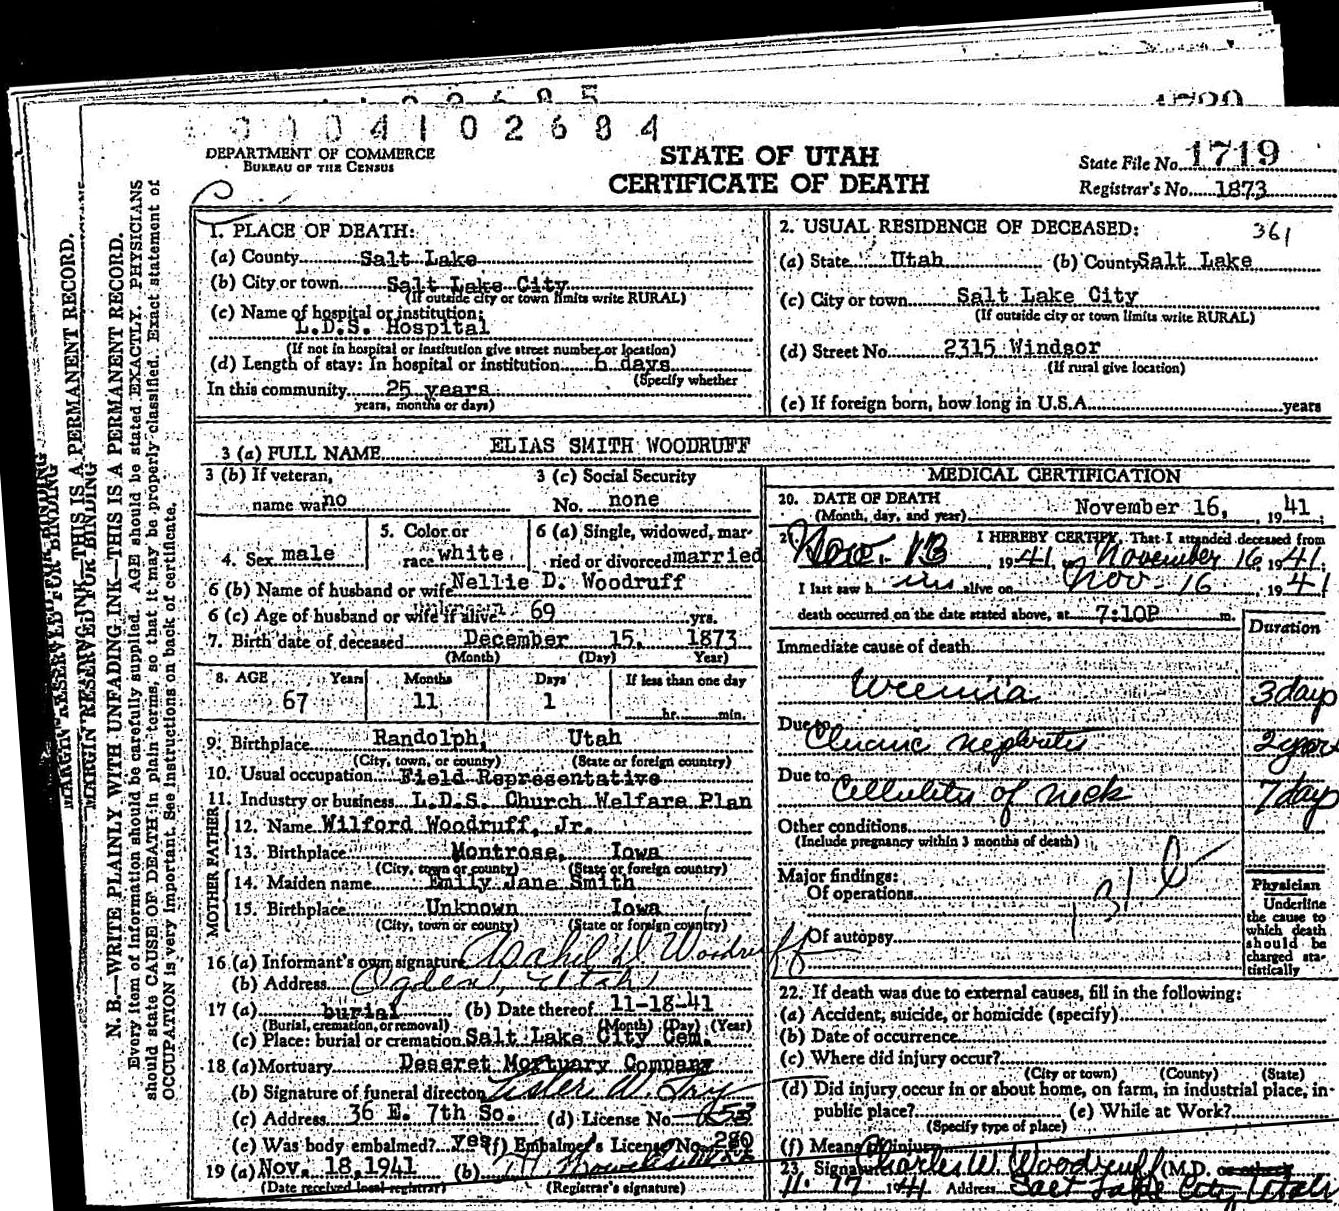 0 0 0 4 1 0 2 6 8 4
DEPARTMENT OF COMMERCE
BUREAU OF THE CENSUS
STATE OF UTAH
CERTIFICATE OF DEATH
State File No. 1719
Registrar's No. 1873
1. PLACE OF DEATH:
(a) County Salt Lake
(b) City or town Salt Lake City
(If outside city or town limits write RURAL)
(c) Name of hospital or institution:
L.D.S. Hospital
(If not in hospital or institution give street number or location)
(d) Length of stay: In hospital or institution 6 days
(Specify whether
In this community 25 years
years, months or days)
2. USUAL RESIDENCE OF DECEASED: 361
(a) State Utah (b) County Salt Lake
(c) City or town Salt Lake City
(If outside city or town limits write RURAL)
(d) Street No. 2315 Windsor
(If rural give location)
(e) If foreign born, how long in U.S.A. years
3 (a) FULL NAME ELIAS SMITH WOODRUFF
3 (b) If veteran,
name war no
3 (c) Social Security
No. none
4. Sex male
5. Color or
race white
6 (a) Single, widowed, mar-
ried or divorced married
6 (b) Name of husband or wife Nellie D. Woodruff
6 (c) Age of husband or wife if alive 69 yrs.
7. Birth date of deceased December 15, 1873
(Month) (Day) Year)
8. AGE Years Months Days If less than one day
67 11 1 hr. min.
9. Birthplace Randolph, Utah
(City, town, or county) (State or foreign country)
10. Usual occupation Field Representative
11. Industry or business L.D.S. Church Welfare Plan
FATHER
12. Name Wilford Woodruff, Jr.
13. Birthplace Montrose, Iowa
(City, town or county) (State or foreign country)
MOTHER
14. Maiden name Emily Jane Smith
15. Birthplace Unknown Iowa
(City, town or county) (State or foreign country)
16 (a) Informant's own signature Asahel D Woodruff
(b) Address Ogden, Utah
17 (a) burial (b) Date thereof 11-18-41
(Burial, cremation, or removal) (Month) (Day) (Year)
(c) Place: burial or cremation Salt Lake City Cem.
18 (a) Mortuary Deseret Mortuary Company
(b) Signature of funeral director
(c) Address 36 E. 7th So. (d) License No.
(e) Was body embalmed? yes (f) Embalmer's License No. 280
19 (a) Nov. 18, 1941 (b)
(Date received local registrar) (Registrar's signature)
MEDICAL CERTIFICATION
20. DATE OF DEATH
(Month, day, and year) November 16, 1941
21. I HEREBY CERTIFY, That I attended deceased from
Nov. 13, 1941, November 16, 1941.
I last saw h im alive on Nov - 16, 1941
death occurred on the date stated above, at 7:10P m.
Duration
Immediate cause of death
Uremia 3 days
Due to
Chronic nephritis 2 years
Due to Cellulitis of neck 7 days
Other conditions
(Include pregnancy within 3 months of death)
Major findings:
Of operations
Of autopsy
Physician
Underline
the cause to
which death
should be
charged sta-
tistically
22. If death was due to external causes, fill in the following:
(a) Accident, suicide, or homicide (specify)
(b) Date of occurrence
(c) Where did injury occur?
(City or town) (County) (State)
(d) Did injury occur in or about home, on farm, in industrial place, in
public place? (e) While at Work?
(Specify type of place)
(f) Means of injury
23. Signature Charles W Woodruff (M.D. or other)
11-17 1941 Address Salt Lake City Utah
MARGIN RESERVED FOR BINDING
N. B.—WRITE PLAINLY WITH UNFADING INK—THIS IS A PERMANENT RECORD.
Every item of information should be carefully supplied. AGE should be stated EXACTLY. PHYSICIANS
should state CAUSE OF DEATH in plain terms, so that it may be properly classified. Exact statement of
OCCUPATION is very important. See instructions on back of certificate.